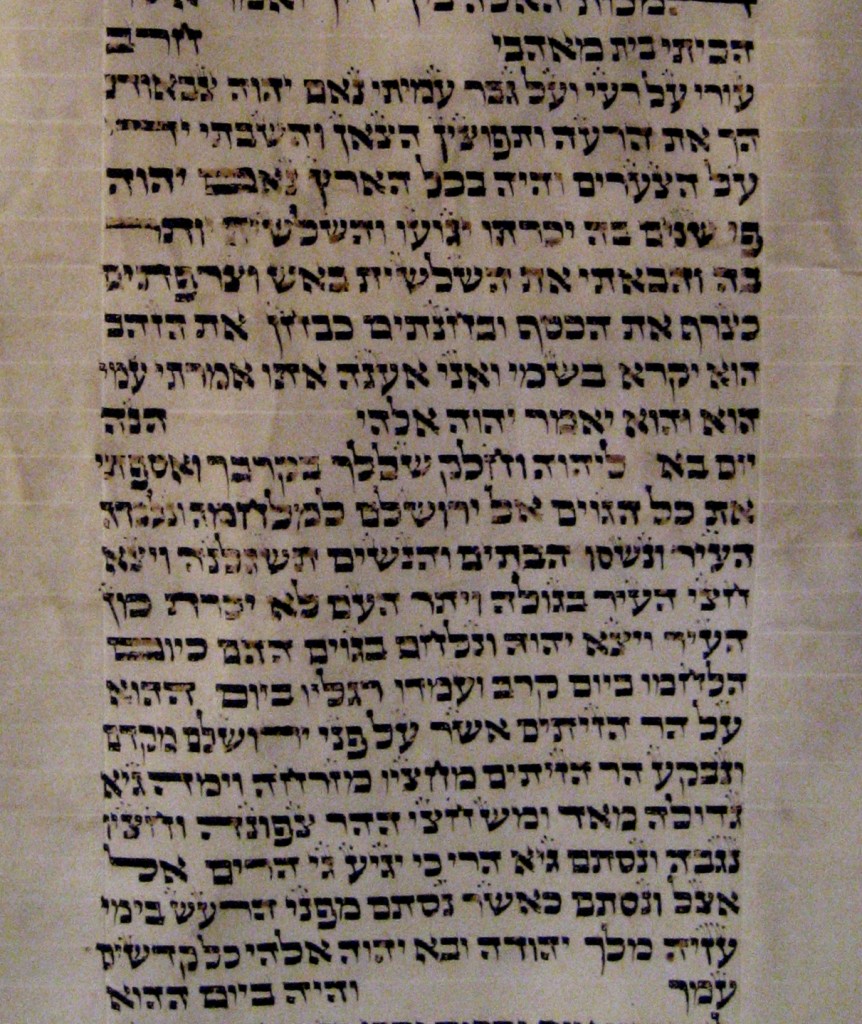 המכות האלה בין ידיך ואמר אשר
הכיתי בית מאהבי חרב
עורי על רעי ועל גבר עמיתי נאם יהוה צבאות
הך את הרעה ותפוצין הצאן והשבתי ידי
על הצערים והיה בכל הארץ נאם יהוה
פי שנים בה יכרתו יגועו והשלשית יותר
בה והבאתי את השלשית באש וצרפתים
כצרף את הכסף ובחנתים כבחן את הזהב
הוא יקרא בשמי ואני אענה אתו אמרתי עמי
הוא והוא יאמר יהוה אלהי הנה
יום בא ליהוה וחלק שללך בקרבך ואספתי
את כל הגוים אל ירושלם למלחמה ונלכדה
העיר ונשסו הבתים והנשים תשגלנה ויצא
חצי העיר בגולה ויתר העם לא יכרת מן
העיר ויצא יהוה ונלחם בגוים ההם כיום
הלחמו ביום קרב ועמדו רגליו ביום ההוא
על הר הזיתים אשר על פני ירושלם מקדם
ונבקע הר הזיתים מחציו מזרחה וימה גיא
גדולה מאד ומש חצי ההר צפונה וחציו
נגבה ונסתם גיא הרי כי יגיע גי הרים אל
אצל ונסתם כאשר נסתם מפני הרעש בימי
עזיה מלך יהודה ובא יהוה אלהי כל קדשים
עמך והיה ביום ההוא